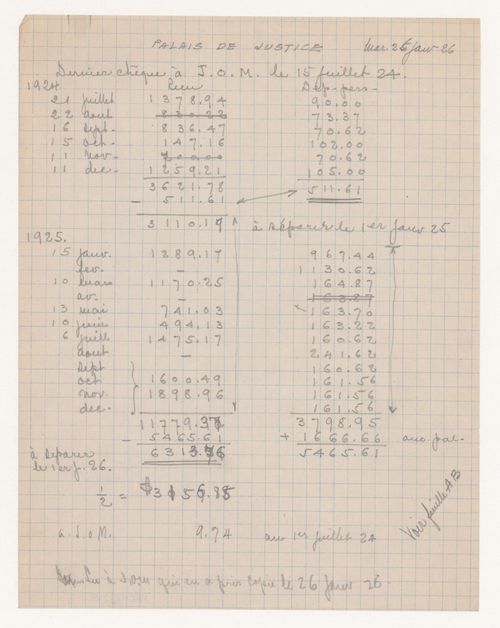 PALAIS DE JUSTICE mar. 26 janv 26
Dernier chèque à J.O.M. le 15 juillet 24.
1924 Reçu Dep-pers-
21 juillet 1378.94 90.00
22 aout 830.22 73.37
16 sept. 836.47 70.62
15 oct- 147.16 102.00
11 nov- 70.62
11 dec- 1259.21 105.00
3621.78 511.61
- 511.61
3110.17 à séparer le 1er janv 25
1925.
15 janv. 1289.17 967.44
fev. — 1130.62
10 mars 1170.25 164.87
av. — 163.87
13 mai 741.03 163.70
10 juin 494.13 163.22
6 juill 1475.17 160.62
aout — 241.62
sept 160.62
oct 1600.49 161.56
nov. 1898.96 161.56
dec- 161.56
11779.37 3798.95
- 5465.61 + 1666.66 anc. pal.
à séparer 6313.76 5465.61
le 1er j. 26.
1/2 = $3156.88
a. J.O.M. 9.74 au 1er juillet 24
Voir feuille A B
Lu à J.O.M. qui en a pris copie le 26 janv 26.